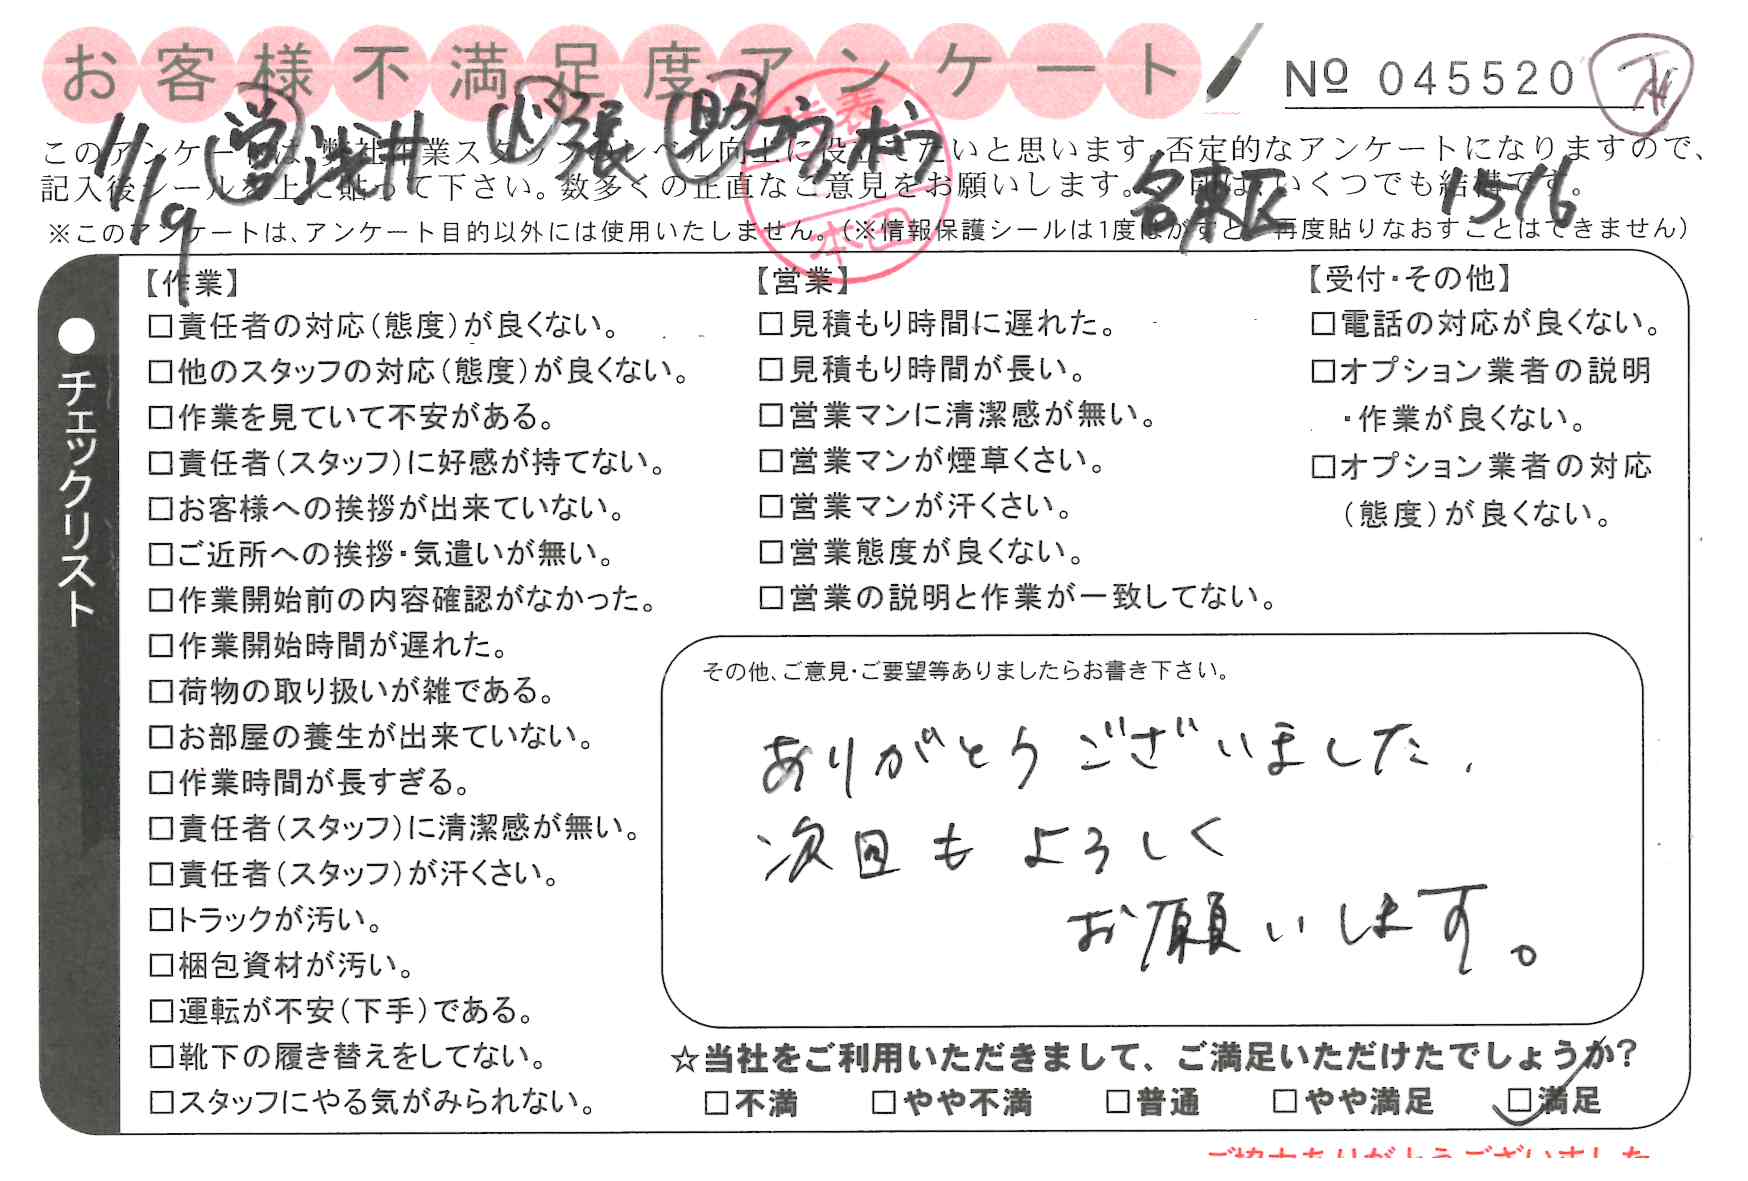 お客様不満足度アンケート
№ 045520
11/9 ㊂営 浅井 ド 張 助 コウノ ボウ
このアンケートは、弊社作業スタッフのレベル向上に役立てたいと思います。否定的なアンケートになりますので、
記入後シールを上に貼って下さい。数多くの正直なご意見をお願いします。
名東区 1576
※このアンケートは、アンケート目的以外には使用いたしません。(※情報保護シールは1度はがすと、再度貼りなおすことはできません)
代表
本田
●チェックリスト
【作業】
□責任者の対応(態度)が良くない。
□他のスタッフの対応(態度)が良くない。
□作業を見ていて不安がある。
□責任者(スタッフ)に好感が持てない。
□お客様への挨拶が出来ていない。
□ご近所への挨拶・気遣いが無い。
□作業開始前の内容確認がなかった。
□作業開始時間が遅れた。
□荷物の取り扱いが雑である。
□お部屋の養生が出来ていない。
□作業時間が長すぎる。
□責任者(スタッフ)に清潔感が無い。
□責任者(スタッフ)が汗くさい。
□トラックが汚い。
□梱包資材が汚い。
□運転が不安(下手)である。
□靴下の履き替えをしてない。
□スタッフにやる気がみられない。
【営業】
□見積もり時間に遅れた。
□見積もり時間が長い。
□営業マンに清潔感が無い。
□営業マンが煙草くさい。
□営業マンが汗くさい。
□営業態度が良くない。
□営業の説明と作業が一致してない。
【受付・その他】
□電話の対応が良くない。
□オプション業者の説明
・作業が良くない。
□オプション業者の対応
(態度)が良くない。
その他、ご意見・ご要望等ありましたらお書き下さい。
ありがとうございました。
次回もよろしく
お願いします。
☆当社をご利用いただきまして、ご満足いただけたでしょうか?
□不満 □やや不満 □普通 □やや満足 □満足
ご協力ありがとうございました